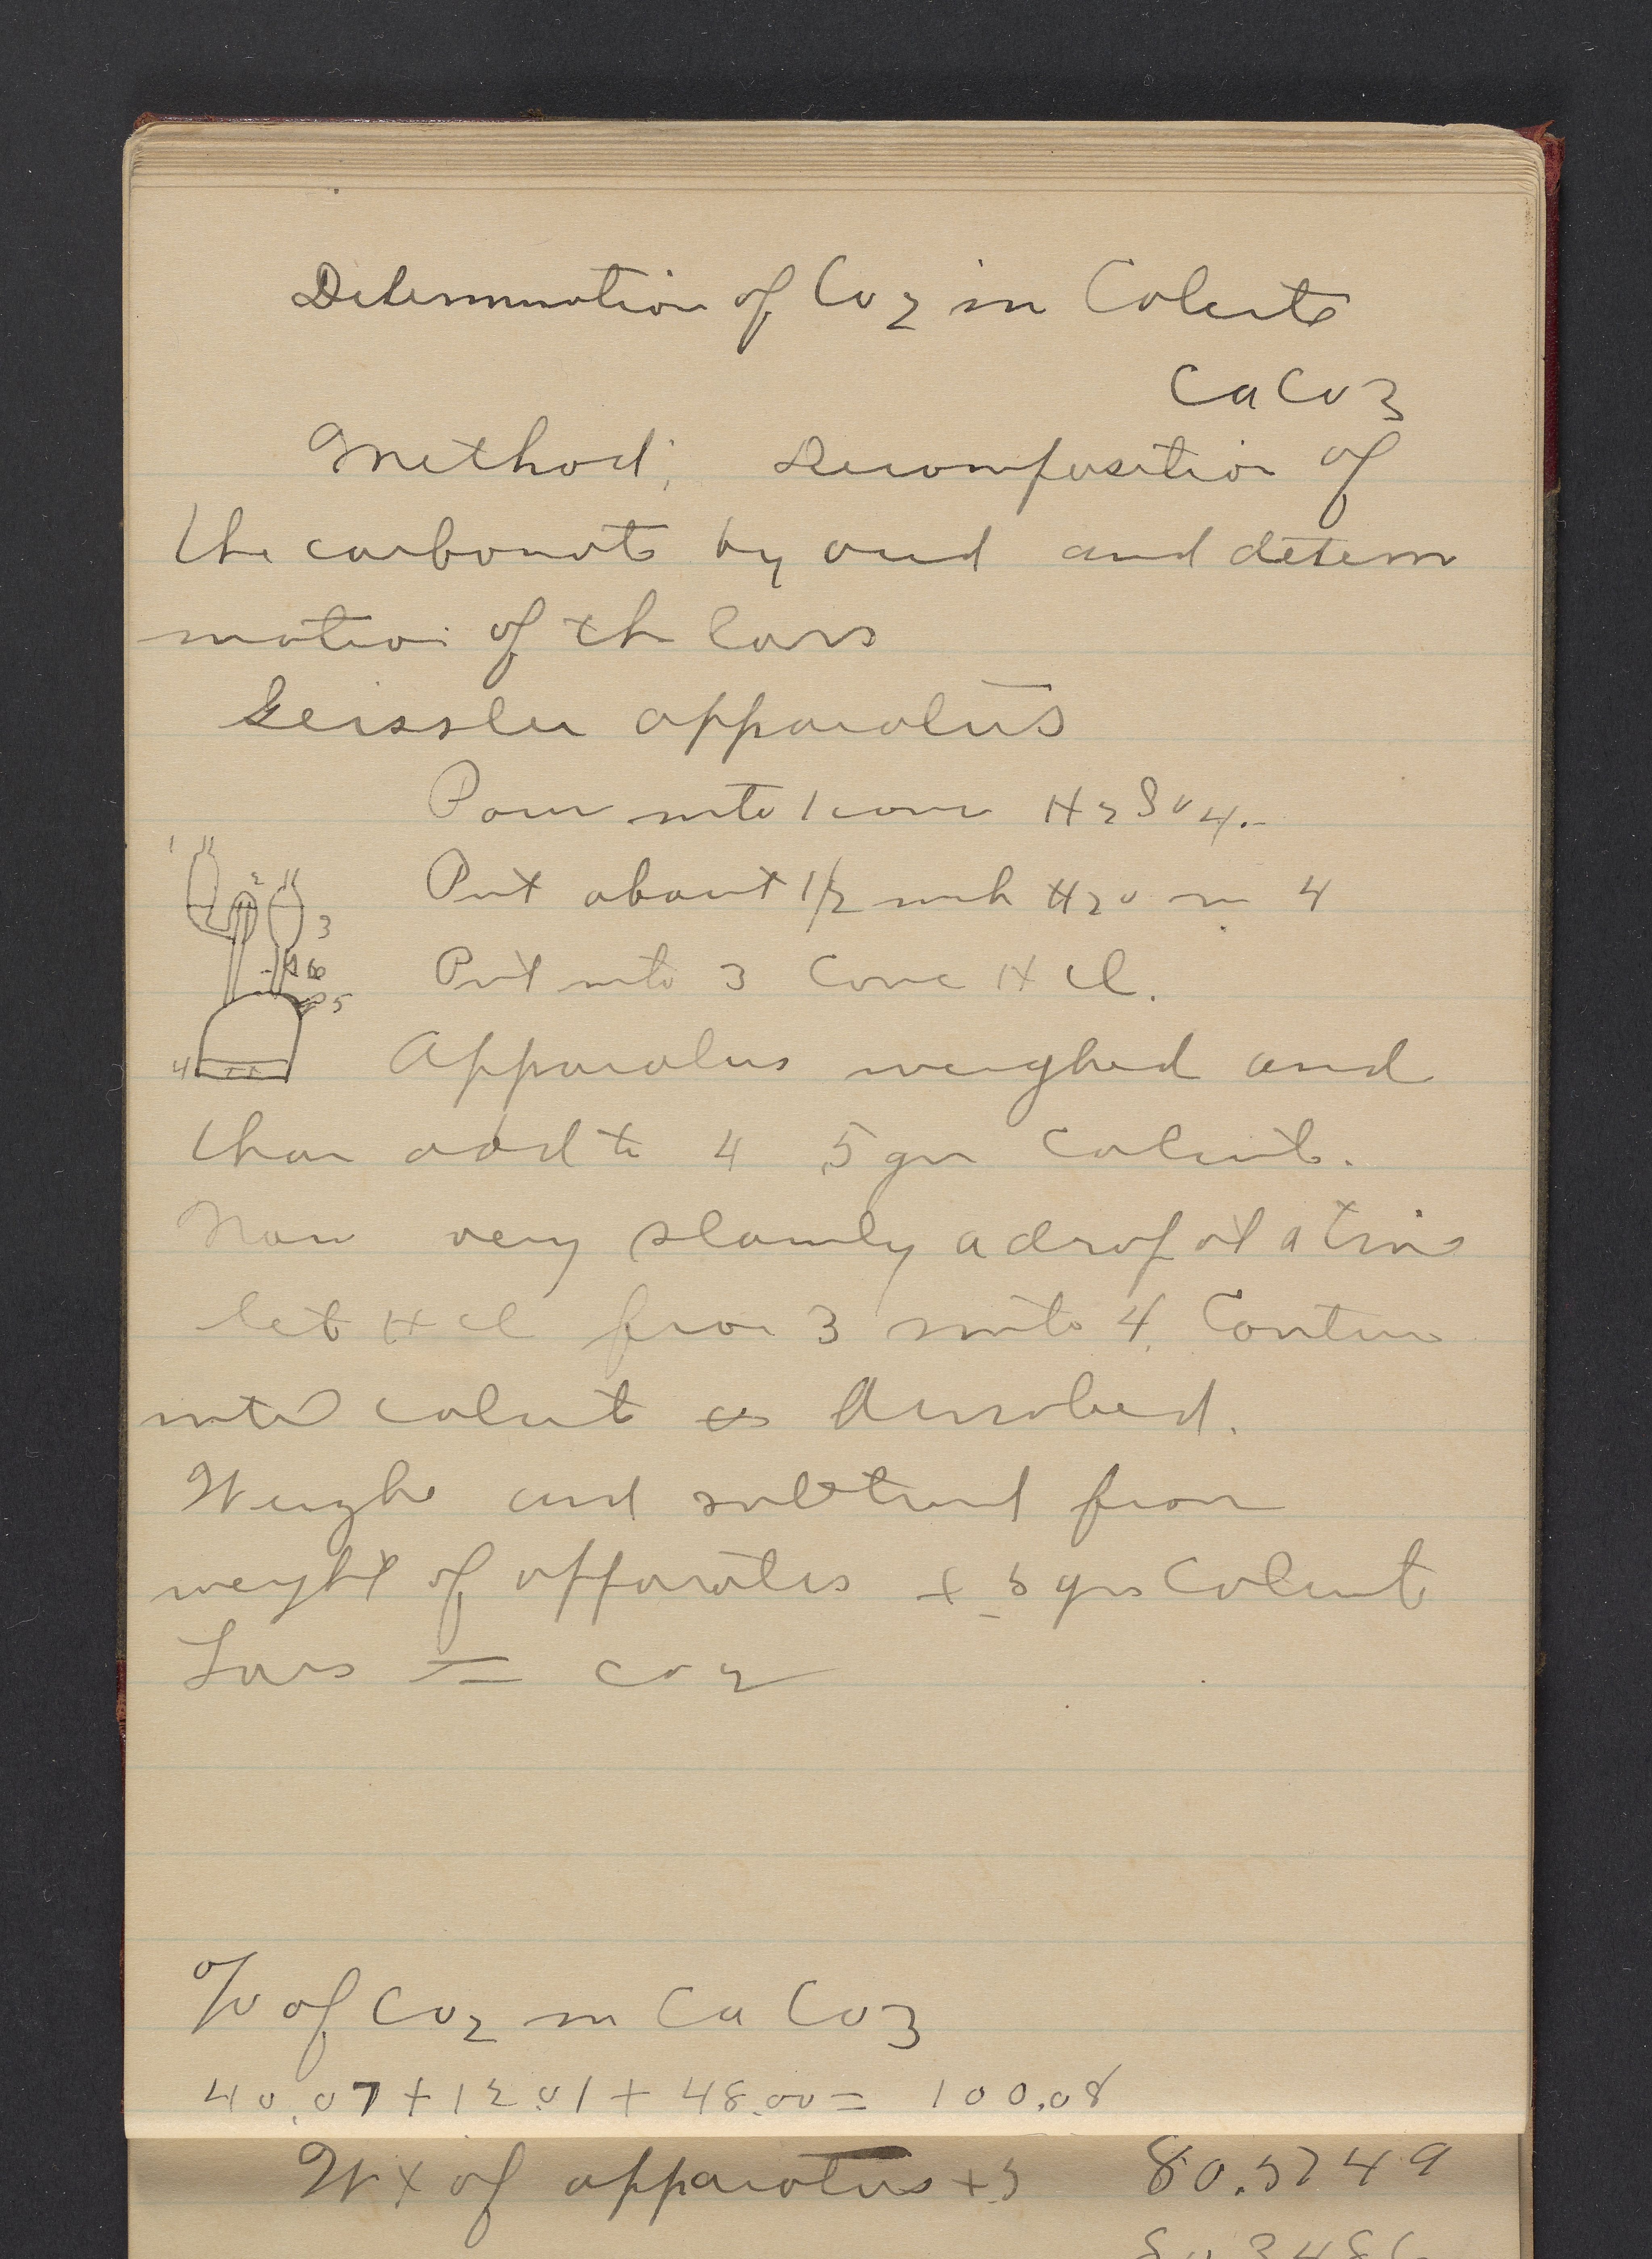 Determination of CO2 in Calcite
CaCO3
Method: Decomposition of
the carbonate by acid and determ
ination of the loss
Geissler apparatus
Pour into 1 conc H2SO4.
Put about 1/2 inch H2O in 4
Put into 3 Conc HCl.
1
2
3
6
5
4
Apparatus weighed and
then add to 4 .5 gm Calcite.
Now very slowly a drop at a time
let HCl from 3 into 4. Continue
until calcite is dissolved.
Weigh and subtract from
weight of apparatus + .5 gms Calcite
Loss = CO2
% of CO2 in CaCO3
40.07 + 12.01 + 48.00 = 100.08
Wt of apparatus + .5 80.5749